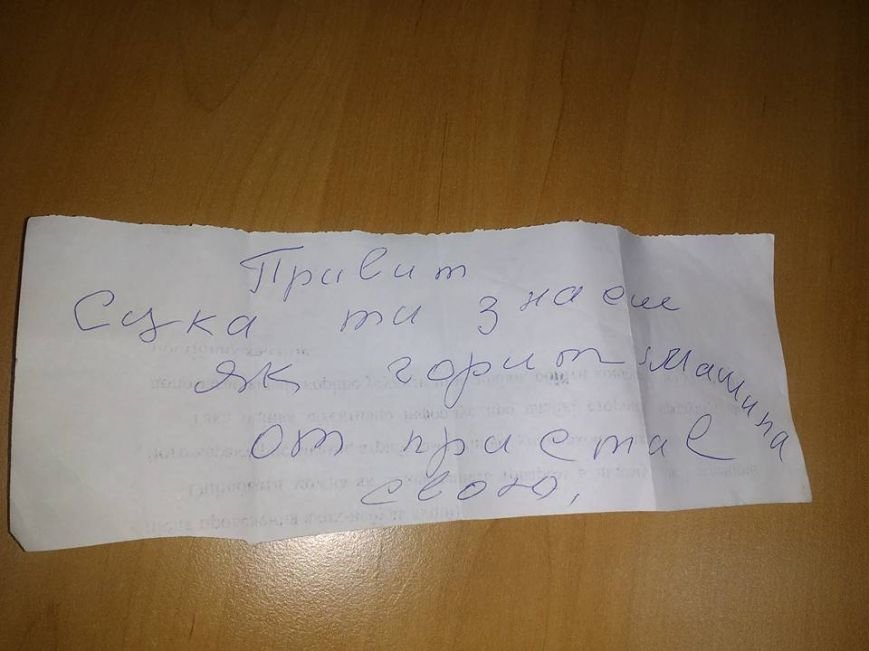 Привит
Сука ти знаеш
як горит машина
от пристав
свою,